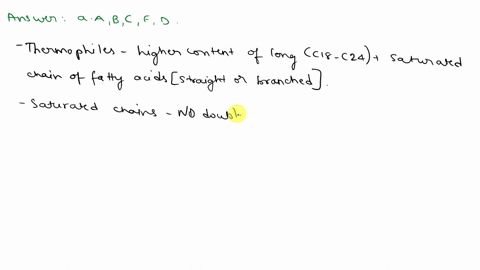 Answer: a. A, B, C, F, D.
- Thermophiles - higher content of long (C18-C24) + saturated
chain of fatty acids [straight or branched].
- Saturated chains - NO doub